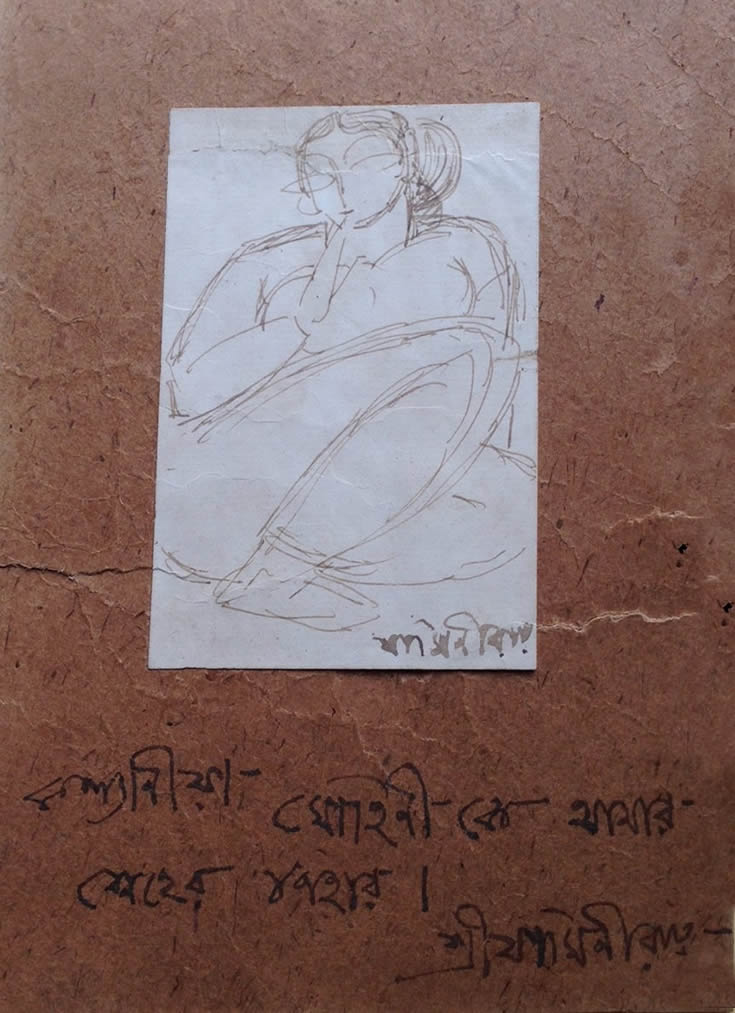 যামিনী রায়
কল্যানীয়া
মোহিনী কে আমার
স্নেহের উপহার।
শ্রীযামিনী রায়